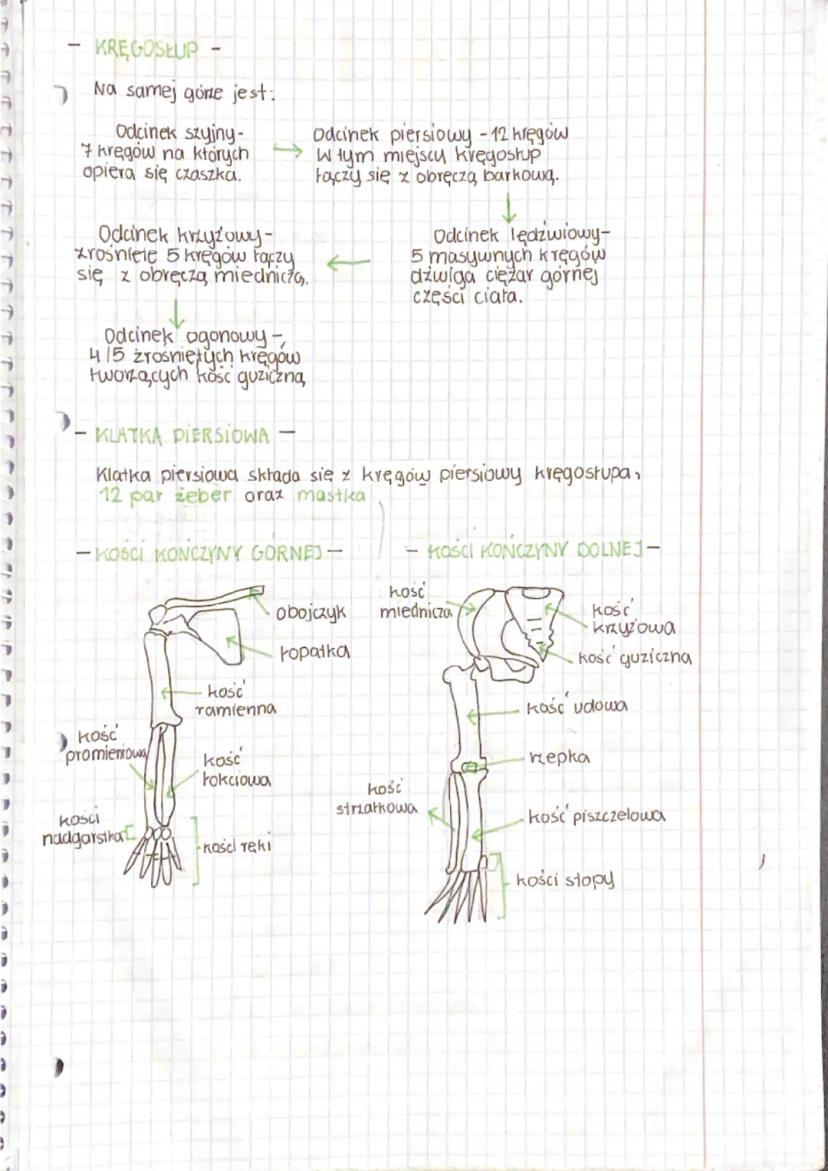 - KRĘGOSŁUP -
Na samej górze jest:
Odcinek szyjny-
7 kręgów na których
opiera się czaszka.
Odcinek piersiowy - 12 kręgów
W tym miejscu kręgosłup
łączy się z obręczą barkową.
Odcinek lędźwiowy-
5 masywnych kręgów
dźwiga ciężar górnej
części ciała.
Odcinek krzyżowy-
zrośnięte 5 kręgów łączy
się z obręczą miedniczą.
Odcinek ogonowy -
4/5 zrośniętych kręgów
tworzących kość guziczną
- KLATKA PIERSIOWA -
Klatka piersiowa składa się z kręgów piersiowy kręgosłupa,
12 par żeber oraz mostka
- KOŚCI KOŃCZYNY GÓRNEJ -
obojczyk
łopatka
kość
ramienna
kość
promieniowa
kość
łokciowa
kości
nadgarstka
kości ręki
- KOŚCI KOŃCZYNY DOLNEJ -
kość
miednicza
kość
krzyżowa
kość guziczna
kość udowa
rzepka
kość
strzałkowa
kość piszczelowa
kości stopy